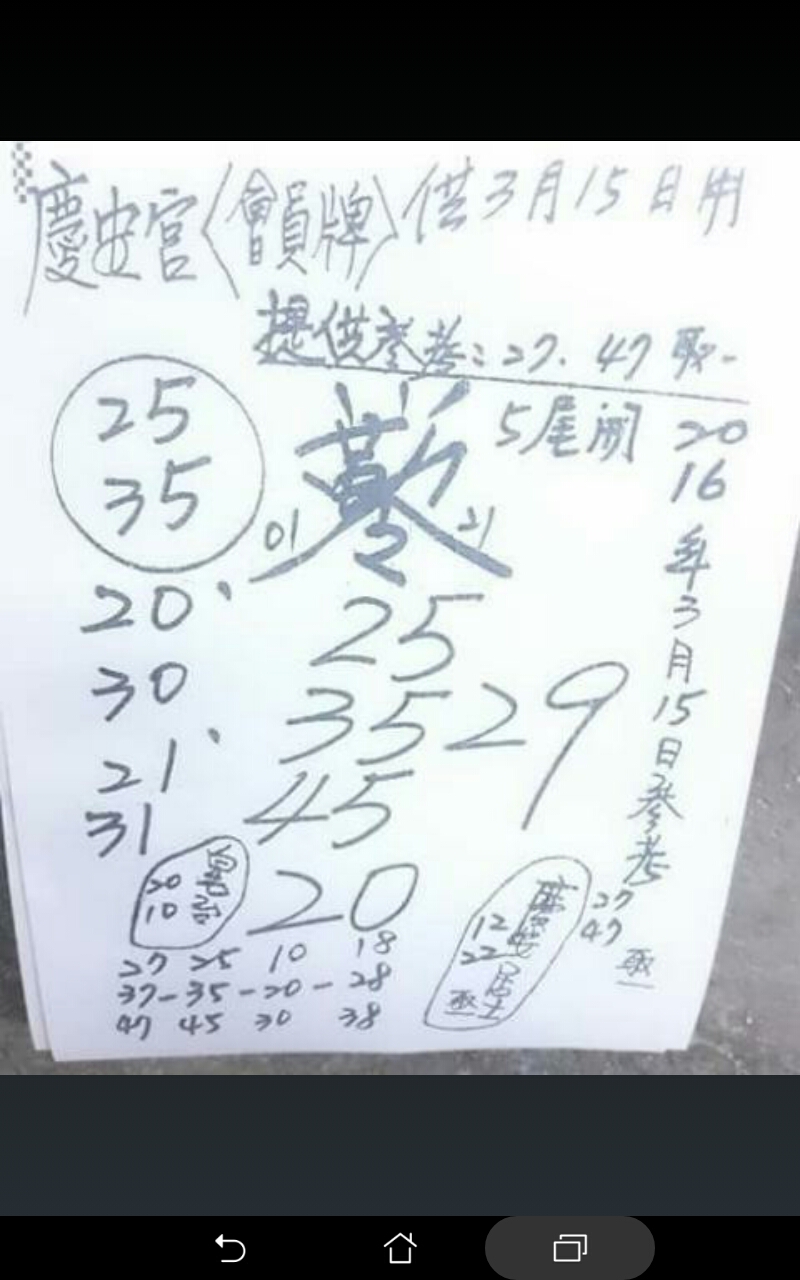 慶安宮〈會員牌〉供3月15日用
提供參考:27.47取一
25
35
5尾開
2016年3月15日參考
01
21
20、
30
21、
31
25
35
29
45
20
20
10
慶安居士
12
22
取一
27
47
取一
27 25 10 18
37-35-20-28
47 45 30 38